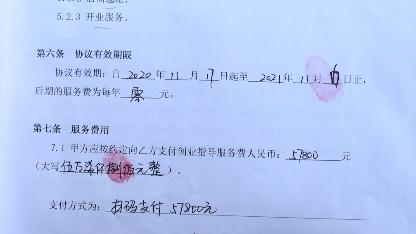 5.2.3 开业服务.
第六条 协议有效期限
协议有效期: 自 2020 年 11 月 17 日起至 2021 年 11 月 16 日止,
后期的服务费为每年 零 元。
第七条 服务费用
7.1 甲方应按约定向乙方支付创业指导服务费人民币: 57800 元
(大写 伍万柒仟捌佰元整 ).
支付方式为: 扫码支付 57800元